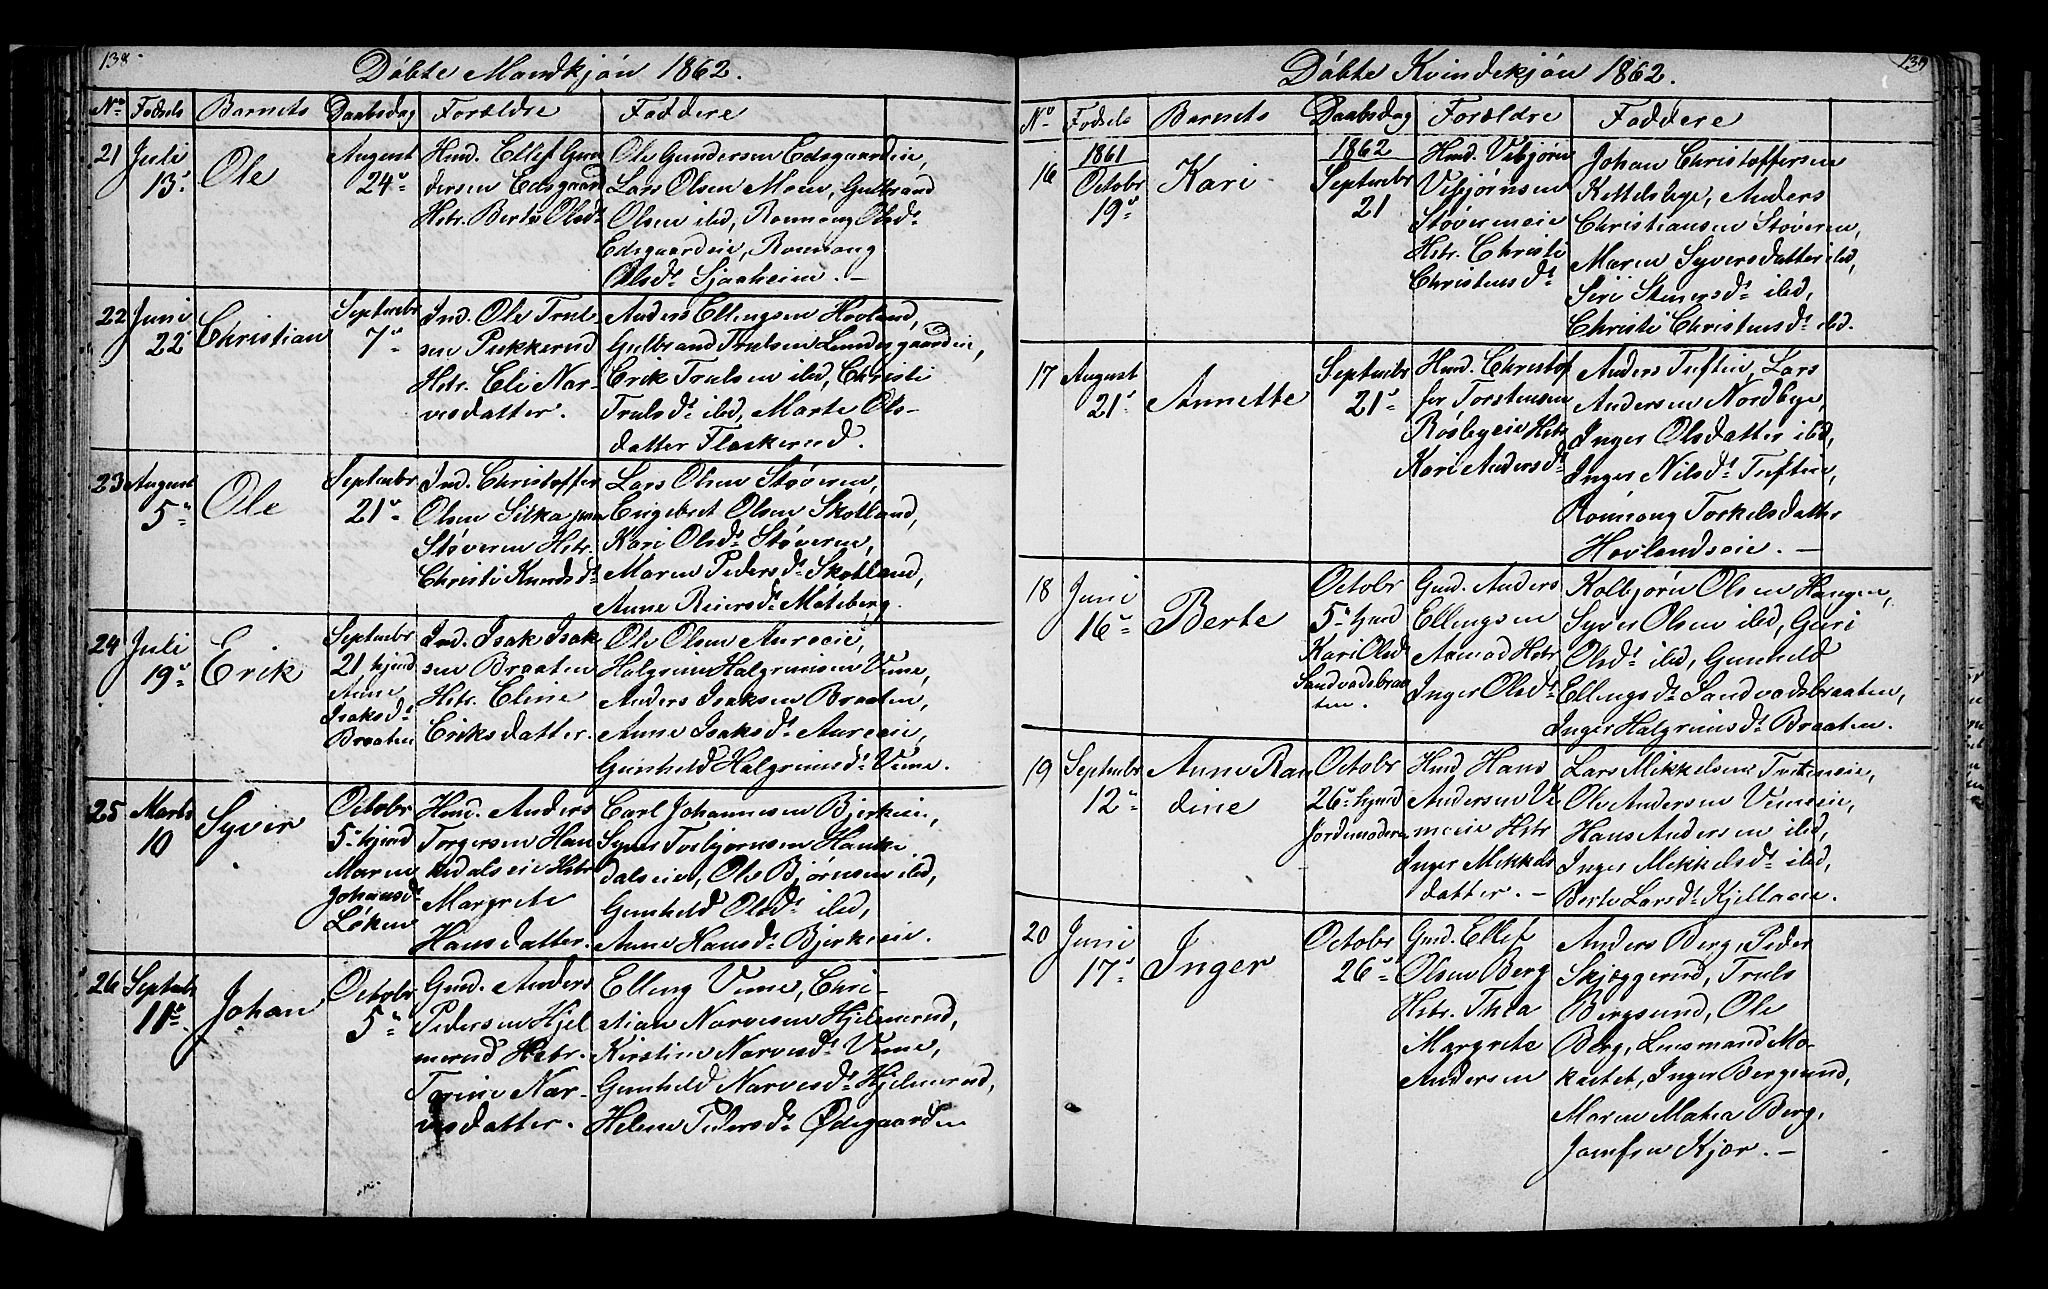 138
Döbte Mandkjön 1862.
No Fødsels Barnets Daabsdag Forældre Faddere
21 Juli 13 Ole August 24
Hmd. Ellef Gun
dersen Edsgaard
Hstr. Berte Olsdr
Ole Gundersen Edsgaardeie,
Lars Olsen Moen, Gulbrand
Olsen ibd, Ronnoug Olsdr
Edsgaardeie, Ronnoug
Olsdr Sjaaheim. —
22 Juni 22 Christian Septembr 7
Ind. Ole Trul
sen Pukkerud
Hstr. Eli Nar-
vesdatter.
Anders Ellingsen Hovland,
Gulbrand Trulsen Lundesgaardeie,
Erik Trulsen ibd, Christi
Trulsdr ibd, Marte Ols-
datter Flaskerud.
23 August 5 Ole Septembr 21
Ind. Christoffer
Olsen Silkajven
Støveren Hstr.
Christi Knudsdr
Lars Olsen Støveren,
Engebret Olsen Skotland,
Kari Olsdr Støveren,
Maren Pedersdr Skotland,
Anne Reiersdr Moteberg.
24 Juli 19 Erik
Septembr
21 hjemd
Anne
Isaksdr
Braaten
Ind. Isak Isak
sen Braaten
Hstr. Eline
Eriksdatter.
Ole Olsen Aureeie,
Halgrim Halgrimsen Vime,
Anders Isaksen Braaten,
Anne Isaksdr Aureeie,
Gunhild Halgrimsdr Vime.
25 Marts 10 Syver
Octobr
5 hjemd
Maren
Johansdr
Löken
Hmd. Anders
Torgersen Han
kedalseie Hstr
Margrete
Hansdatter.
Carl Johannesen Bjerkeie,
Syver Torbjørnsen Hanke
dalseie, Ole Bjørnsen ibd,
Gunhild Olsdr ibd,
Anne Hansdr Bjerkeeie.
26 Septembr 11 Johan Octobr 5
Gmd. Anders
Pedersen Hjel
merud Hstr.
Torine Nar-
vesdatter.
Elling Vime, Chri-
stian Narvesen Hjelmerud,
Kirstine Narvesdr Vime,
Gunhild Narvesdr Hjelmerud,
Helene Pedersdr Ødegaarden
139
Döbte Kvindekjön 1862.
No Fødsels Barnets Daabsdag Forældre Faddere
16 1861 Octobr 19 Kari 1862 Septembr 21
Hmd. Vebjørn
Vebjørnsen
Støvermeie
Hstr. Christi
Christensdr
Johan Christoffersen
Kittelsbye, Anders
Christiansen Støveren,
Maren Syversdatter ibd,
Siri Stenersdr ibd,
Christi Christensdr ibd.
17 August 21 Annette Septembr 21
Hmd. Christof
fer Torstensen
Røsbyeie Hstr
Kari Andersdr
Anders Tuftin, Lars
Andersen Nordbye,
Inger Olsdatter ibd,
Inger Nilsdr Tuftin,
Ronnoug Torkelsdatter
Hovlandseie. —
18 Juni 16 Berte
Octobr
5 hjemd
Kari Olsdr
Sandvadsbraa
ten.
Gmd. Anders
Ellingsen
Aamod Hstr
Inger Olsdr
Kolbjørn Olsen Haugen,
Syver Olsen ibd, Guri
Olsdr ibd, Gunhild
Ellingsdr Sandvadsbraaten,
Inger Halgrimsdr Braaten.
19 Septembr 12 Anne Ran
dine
Octobr
26 hjemd
Jordemoderen
Hmd Hans
Andersen Vi
meeie Hstr
Inger Mikkels
datter. —
Lars Mikkelsen Tveteneie,
Ole Andersen Vimeeie,
Hans Andersen ibd,
Inger Mikkelsdr ibd,
Berte Larsdr Kjellaeie.
20 Juni 17 Inger Octobr 26
Gmd. Ellef
Olsen Berg
Hstr. Thea
Margrete
Andersen
Anders Berg, Peder
Skjæggerud, Truls
Bergsund, Ole
Berg, Lensmand Mo-
kastet, Inger Bergsund,
Maren Mathea Berg,
Jomfru Kjær. —